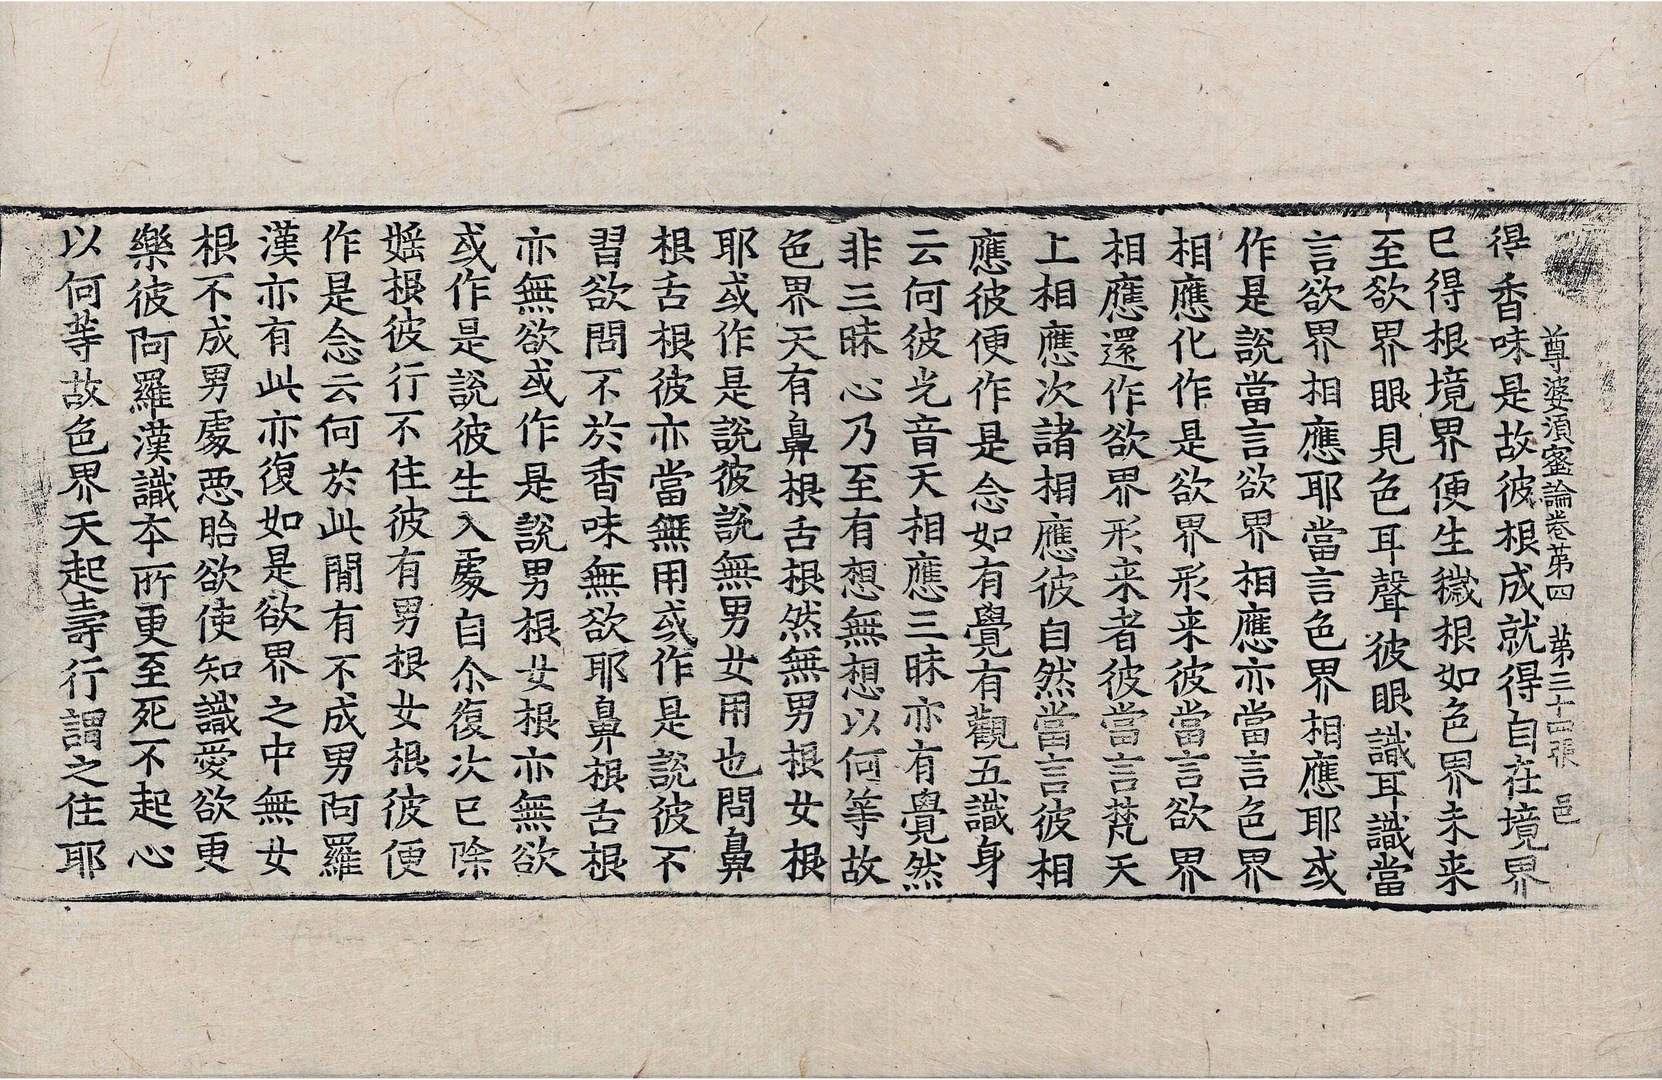 尊婆須蜜論卷第四　第三十四張　邑
得香味是故彼根成就得自在境界
巳得根境界便生穢根如色界未来
至欲界眼見色耳聲彼眼識耳識當
言欲界相應耶當言色界相應耶或
作是說當言欲界相應亦當言色界
相應化作是欲界形来彼當言欲界
相應還作欲界形来者彼當言梵天
上相應次諸相應彼自然當言彼相
應彼便作是念如有覺有觀五識身
云何彼光音天相應三昧亦有覺然
非三昧心乃至有想無想以何等故
色界天有鼻根舌根然無男根女根
耶或作是說彼說無男女用也問鼻
根舌根彼亦當無用或作是說彼不
習欲問不於香味無欲耶鼻根舌根
亦無欲或作是說男根女根亦無欲
或作是說彼生入處自尒復次巳除
婬根彼行不住彼有男根女根彼便
作是念云何於此閒有不成男阿羅
漢亦有此亦復如是欲界之中無女
根不成男處惡胎欲使知識愛欲更
樂彼阿羅漢識本所更至死不起心
以何等故色界天起壽行謂之住耶